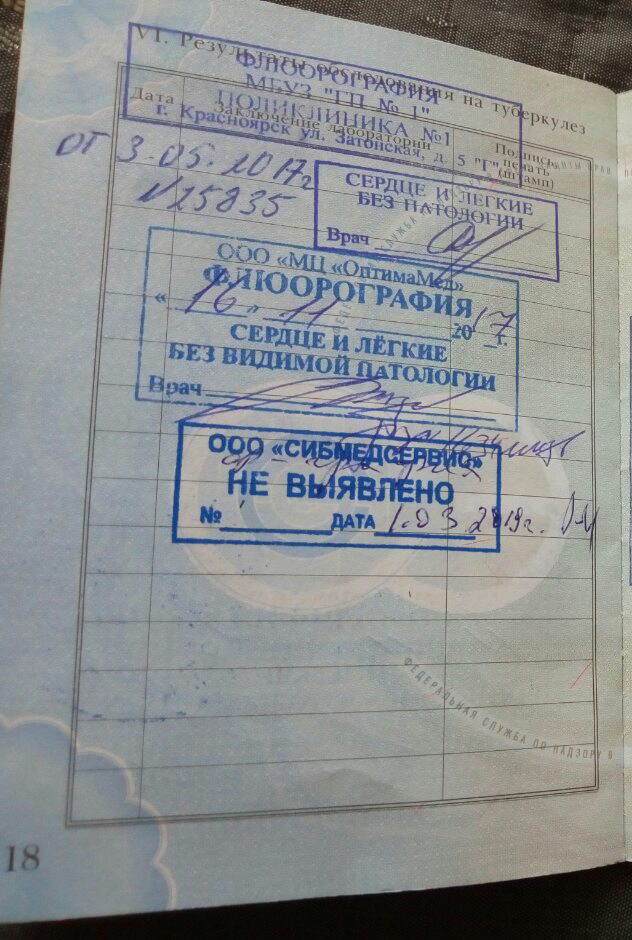 VI. Результаты обследования на туберкулез
ФЛЮОРОГРАФИЯ
МБУЗ "ГП № 1"
ПОЛИКЛИНИКА №1
г. Красноярск ул. Затонская, д. 5 "Г"
Дата
Заключение лаборатории
Подпись,
печать
(штамп)
от 3.05.2017г
N25835
СЕРДЦЕ И ЛЕГКИЕ
БЕЗ ПАТОЛОГИИ
Врач
ООО «МЦ «ОптимаМед»
ФЛЮОРОГРАФИЯ
« 16 » 11 2017 г.
СЕРДЦЕ И ЛЁГКИЕ
БЕЗ ВИДИМОЙ ПАТОЛОГИИ
Врач
ООО «СИБМЕДСЕРВИС»
НЕ ВЫЯВЛЕНО
№ ДАТА 1.03.2019г.
ФЕДЕРАЛЬНАЯ СЛУЖБА ПО НАДЗОРУ В
18